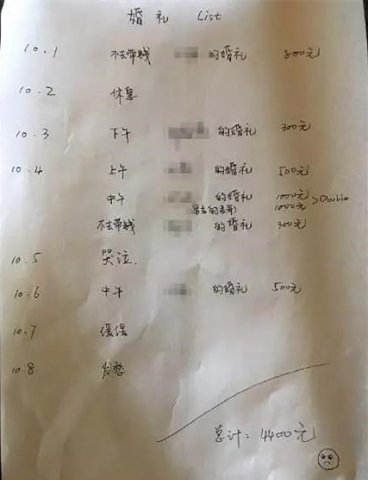 婚礼 List
10.1 不去带钱 的婚礼 800元
10.2 休息
10.3 下午 的婚礼 300元
10.4 上午 的婚礼 500元
中午 的婚礼 1000元 >Double
1000元
不去带钱 的婚礼 300元
10.5 哭泣.
10.6 中午 的婚礼 500元
10.7 缓缓
10.8 发愁
总计: 4400元